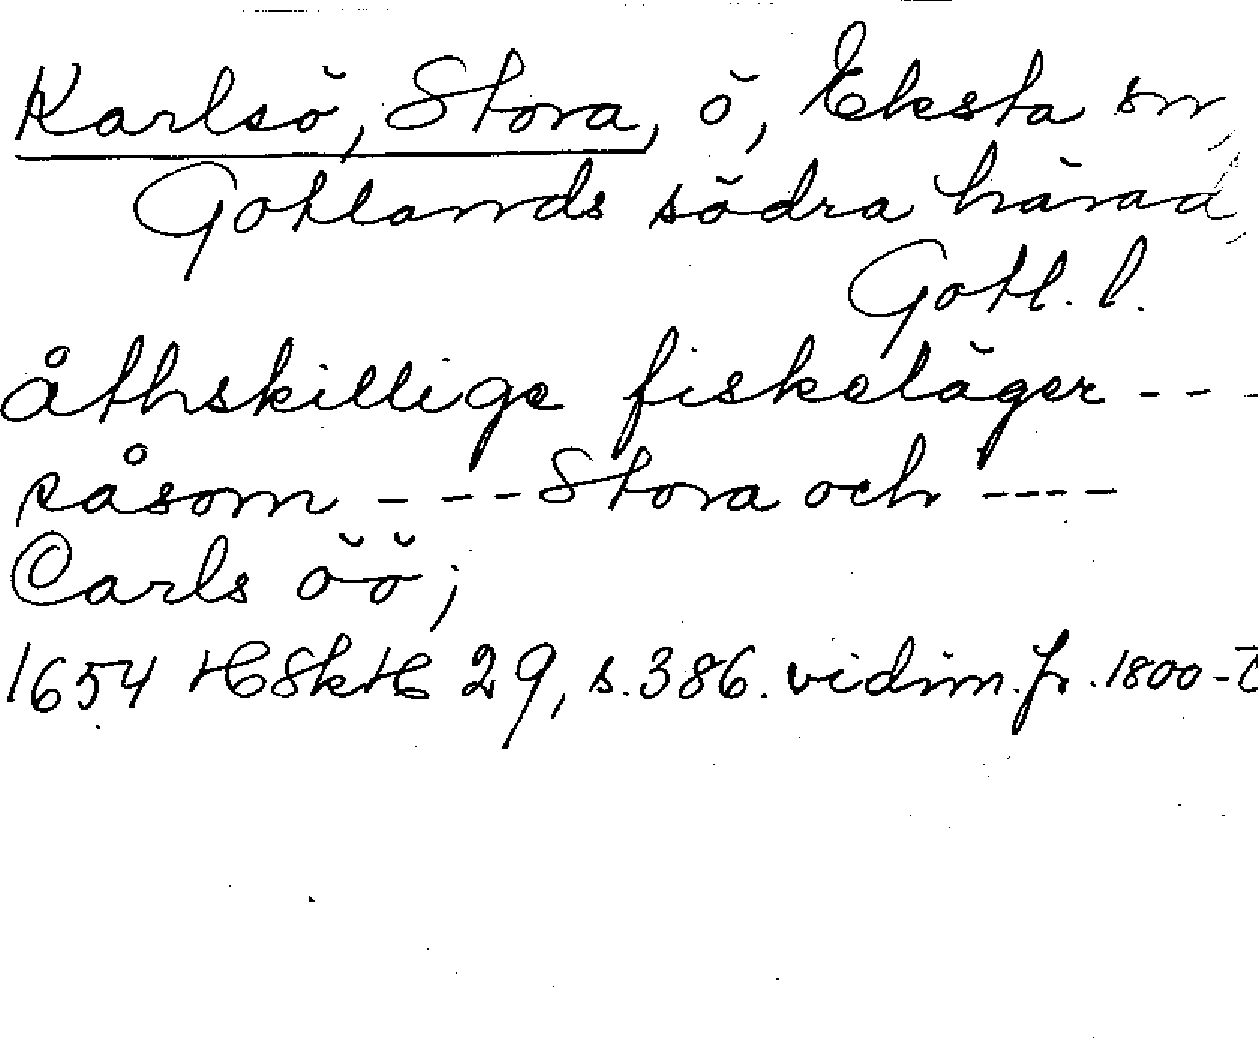 Karlsö, Stora, ö, Eksta sn,
Gotlands södra härad,
Gotl. l.
åthskillige fiskeläger - - -
såsom - - - Stora och - - - -
Carls öö;
1654 HSkH 29, s. 386. vidim. fr. 1800-t